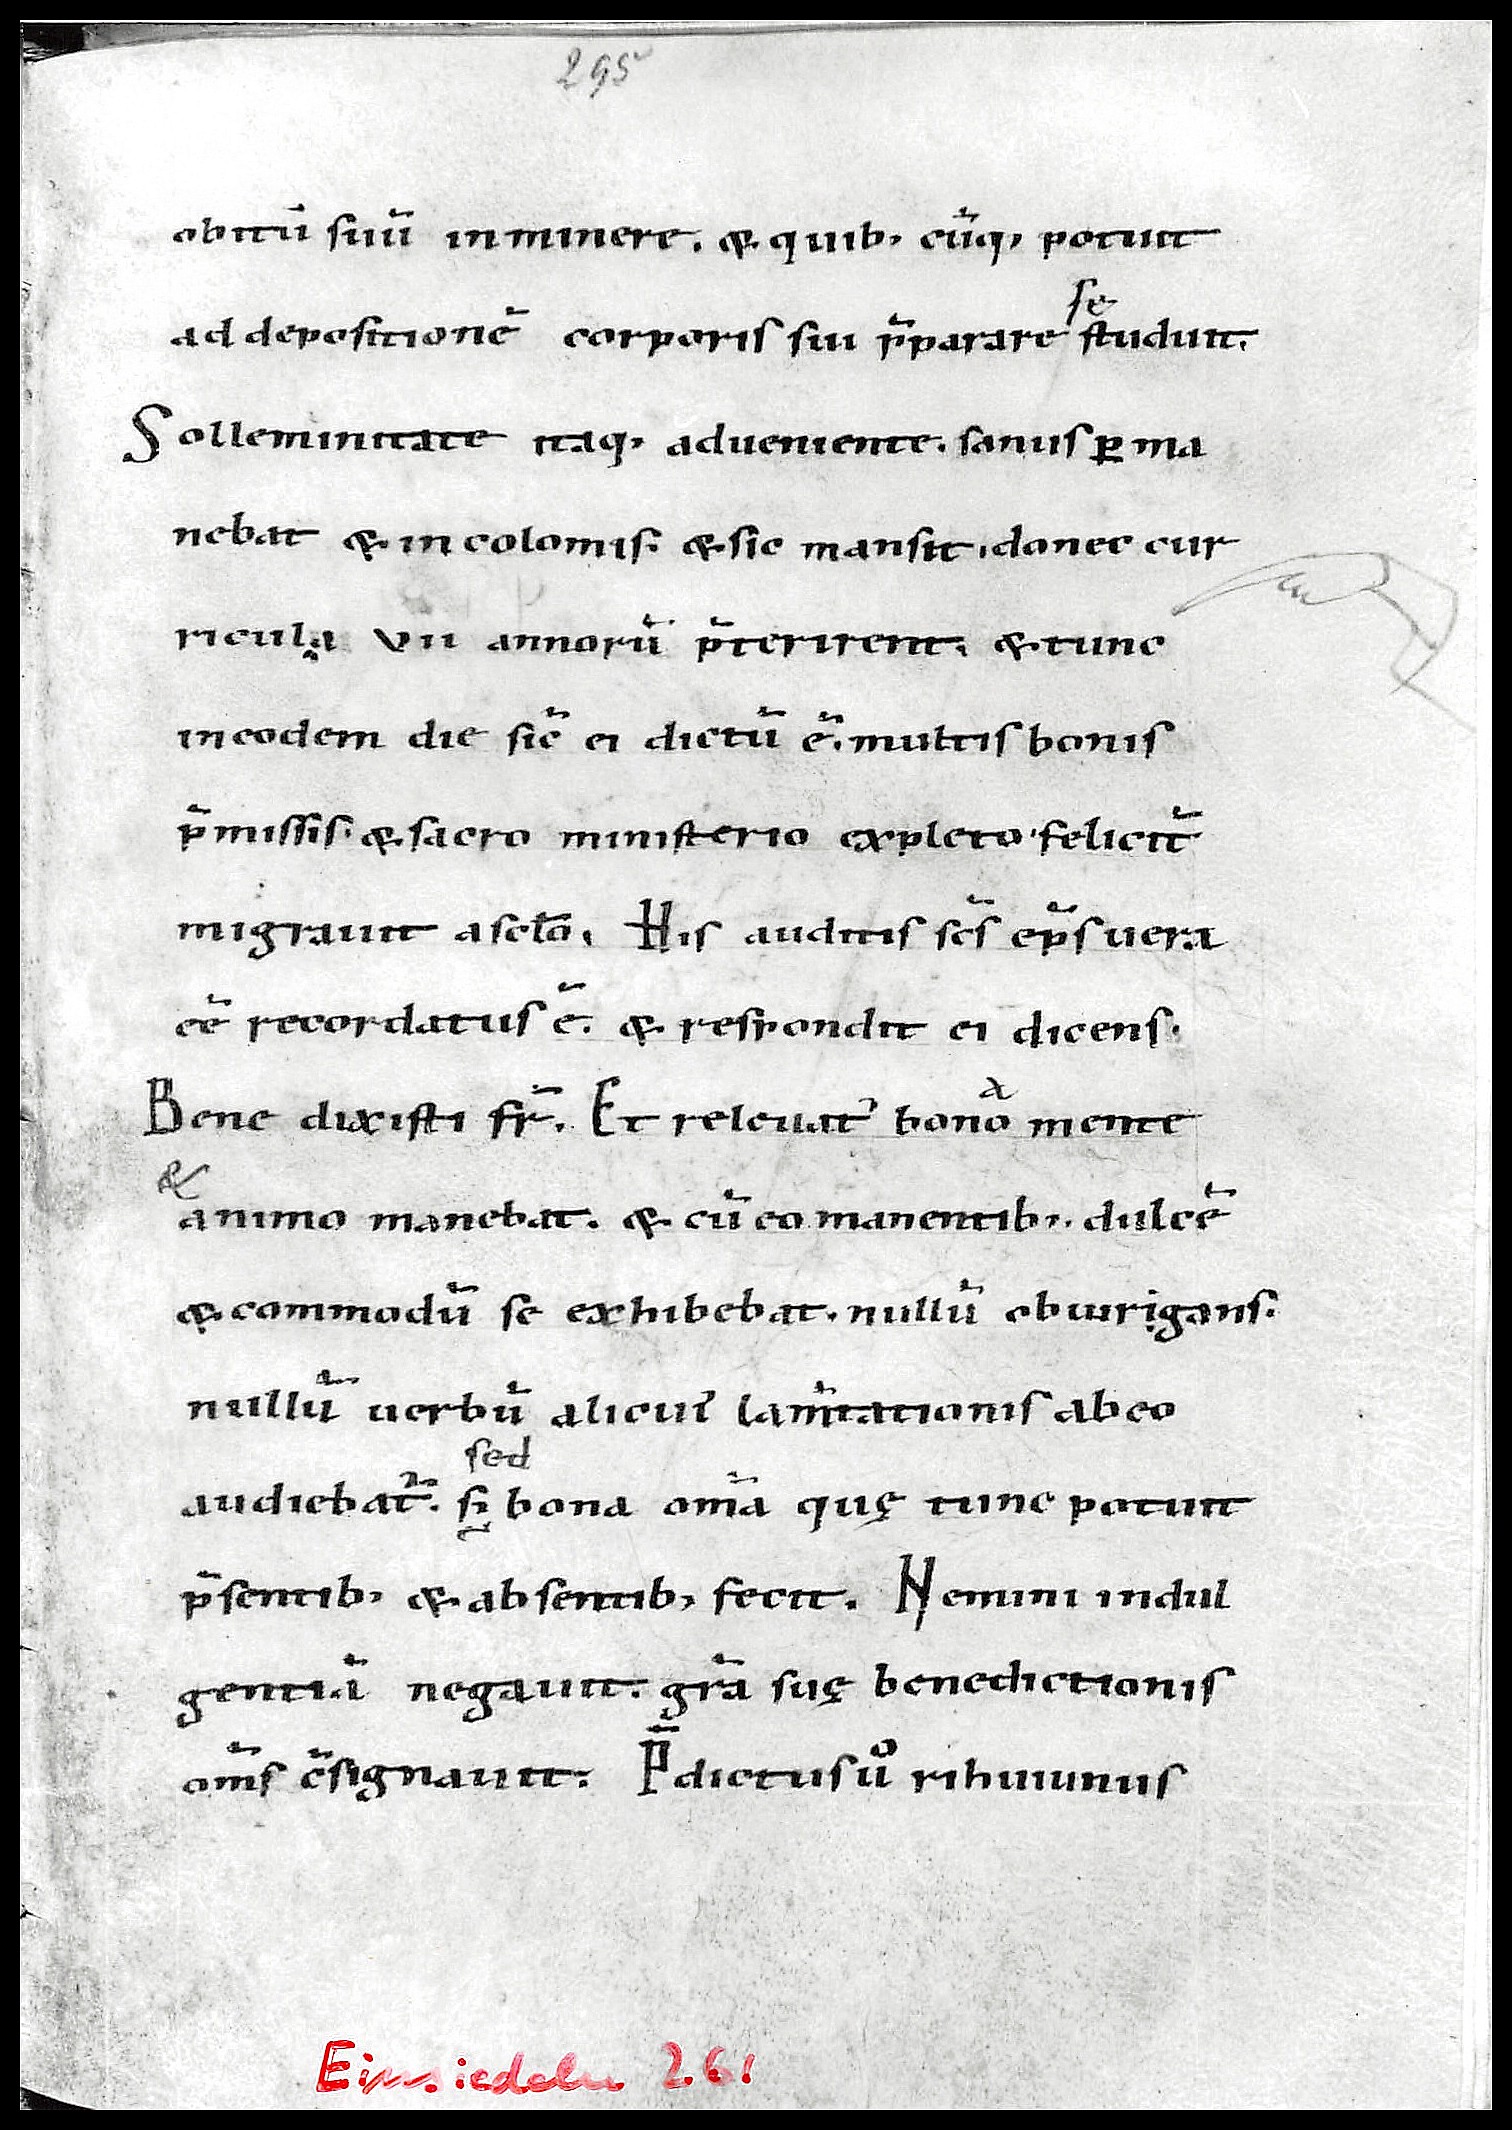 295
obitū suū inminere. & quib; cūq; potuit
ad depositionē corporis sui p̄parare se studuit.
Sollemnitate itaq; adueniente. sanus ꝑma
nebat & incolomis. & sic mansit. donec cur
ricula VII annorū p̄terirent. & tunc
in eodem die sic̄ ei dictū ē. multis bonis
p̄missis. & sacro ministerio expleto. felicit̄
migrauit a sclo̅. His auditis sc̄s ep̄s uera
eē recordatus ē. & respondit ei dicens.
Bene dixisti fr̄. Et releuat᷑ bona mente
& animo manebat. & cū eo manentib;. dulcē
& commodū se exhibebat. nullū obiurigans.
nullū uerbū alicui᷒ lam̄tationis ab eo
audiebat᷑. sed
bona om̄a quę tunc potuit
p̄sentib; & absentib; fecit. Nemini indul
gentiā negauit. gr̄a suę benedictionis
om̄s c̄signauit. P̄dictus uͦ rihuuinus
Einsiedeln 261